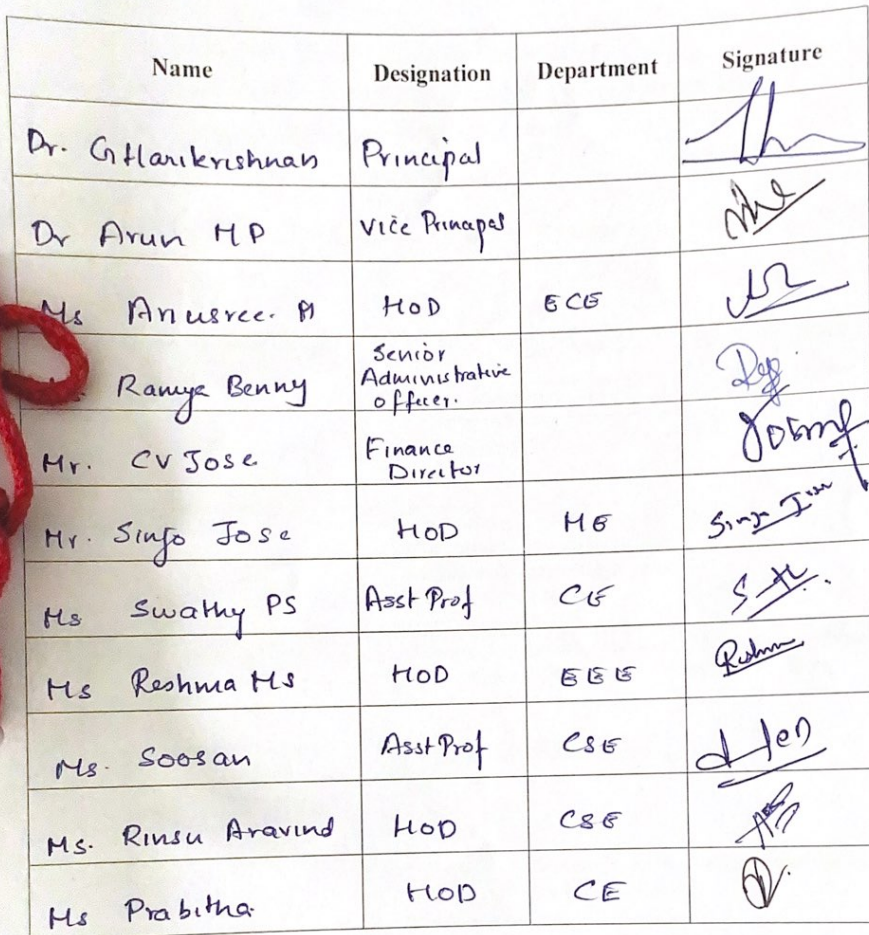 Name Designation Department Signature
Dr. G Harikrishnan Principal
Dr Arun MP Vice Principal
Ms Anusree. M HOD ECE
Ramya Benny Senior
Administrative
officer.
Mr. CV Jose Finance
Director
Mr. Sinjo Jose HOD ME Sinjo Jose
Ms Swathy PS Asst Prof CE
Ms Reshma MS HOD EEE Reshma
Ms. Soosan Asst Prof CSE
Ms. Rinsu Aravind HOD CSE
Ms Prabitha HOD CE